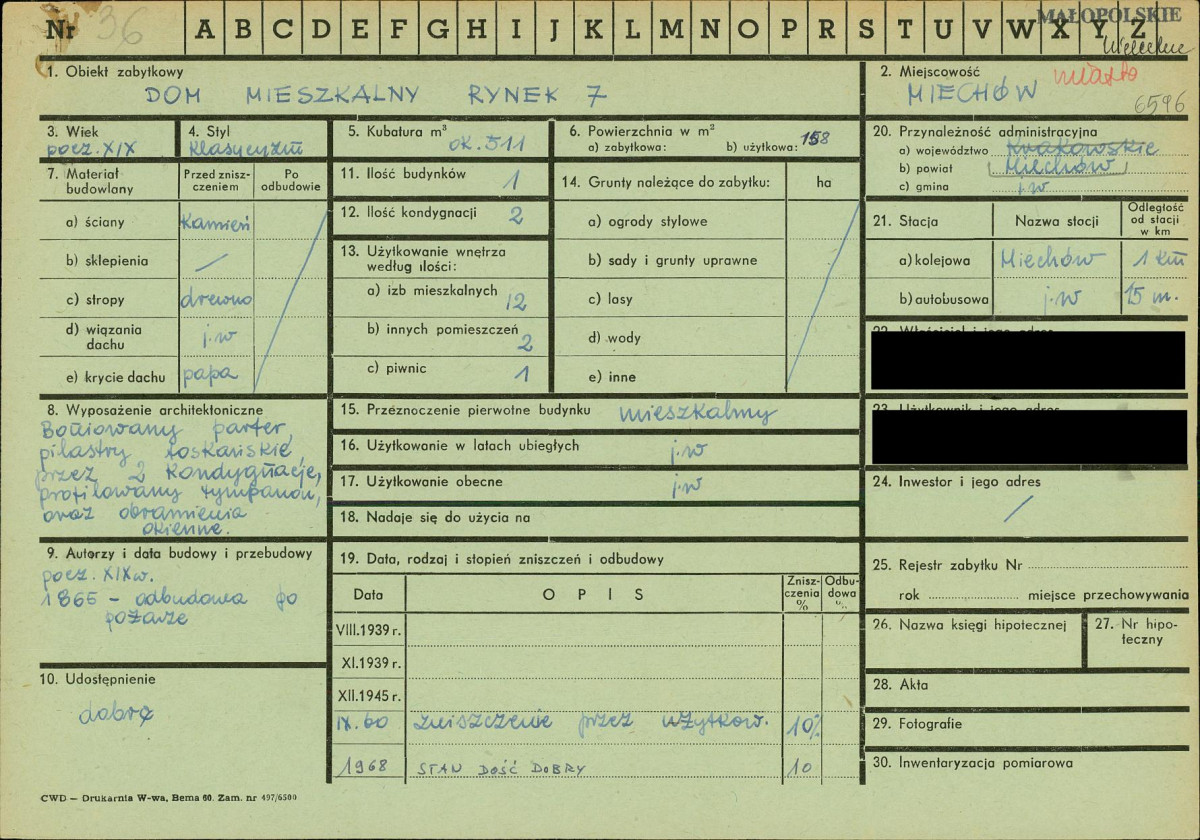 Nr 36 A B C D E F G H I J K L M N O P R S T U V W X Y Z
MAŁOPOLSKIE
1. Obiekt zabytkowy
DOM MIESZKALNY RYNEK 7
2. Miejscowość miasto
MIECHÓW
6596
3. Wiek
pocz. XIX
4. Styl
Klasycyzm
5. Kubatura m³
ok. 511
6. Powierzchnia w m²
a) zabytkowa: b) użytkowa: 158
7. Materiał budowlany
Przed zniszczeniem
Po odbudowie
a) ściany Kamień
b) sklepienia /
c) stropy drewno
d) wiązania dachu j.w
e) krycie dachu papa
8. Wyposażenie architektoniczne
Boniowany parter,
pilastry toskańskie,
przez 2 kondygnacje,
profilowany tympanon,
oraz obramienia
okienne.
9. Autorzy i data budowy i przebudowy
pocz. XIX w.
1865 – odbudowa po
pożarze
10. Udostępnienie
dobre
11. Ilość budynków 1
12. Ilość kondygnacji 2
13. Użytkowanie wnętrza
według ilości:
a) izb mieszkalnych 12
b) innych pomieszczeń 2
c) piwnic 1
14. Grunty należące do zabytku: ha
a) ogrody stylowe
b) sady i grunty uprawne
c) lasy
d) wody
e) inne
15. Przeznoczenie pierwotne budynku mieszkalny
16. Użytkowanie w latach ubiegłych j.w
17. Użytkowanie obecne j.w
18. Nadaje się do użycia na
19. Data, rodzaj i stopień zniszczeń i odbudowy
Data OPIS Zniszczenia % Odbudowa %
VIII.1939 r.
XI.1939 r.
XII.1945 r.
IX.60 zniszczenie przez użytkow. 10%
1968 STAN DOŚĆ DOBRY 10
20. Przynależność administracyjna
a) województwo Krakowskie
b) powiat Miechów
c) gmina j.w
21. Stacja Nazwa stacji Odległość od stacji w km
a) kolejowa Miechów 1 km
b) autobusowa j.w 15 m.
22. Właściciel i jego adres
23. Użytkownik i jego adres
24. Inwestor i jego adres
/
25. Rejestr zabytku Nr
rok miejsce przechowywania
26. Nazwa księgi hipotecznej
27. Nr hipoteczny
28. Akta
29. Fotografie
30. Inwentaryzacja pomiarowa
CWD — Drukarnia W-wa, Bema 60. Zam. nr 497/6500